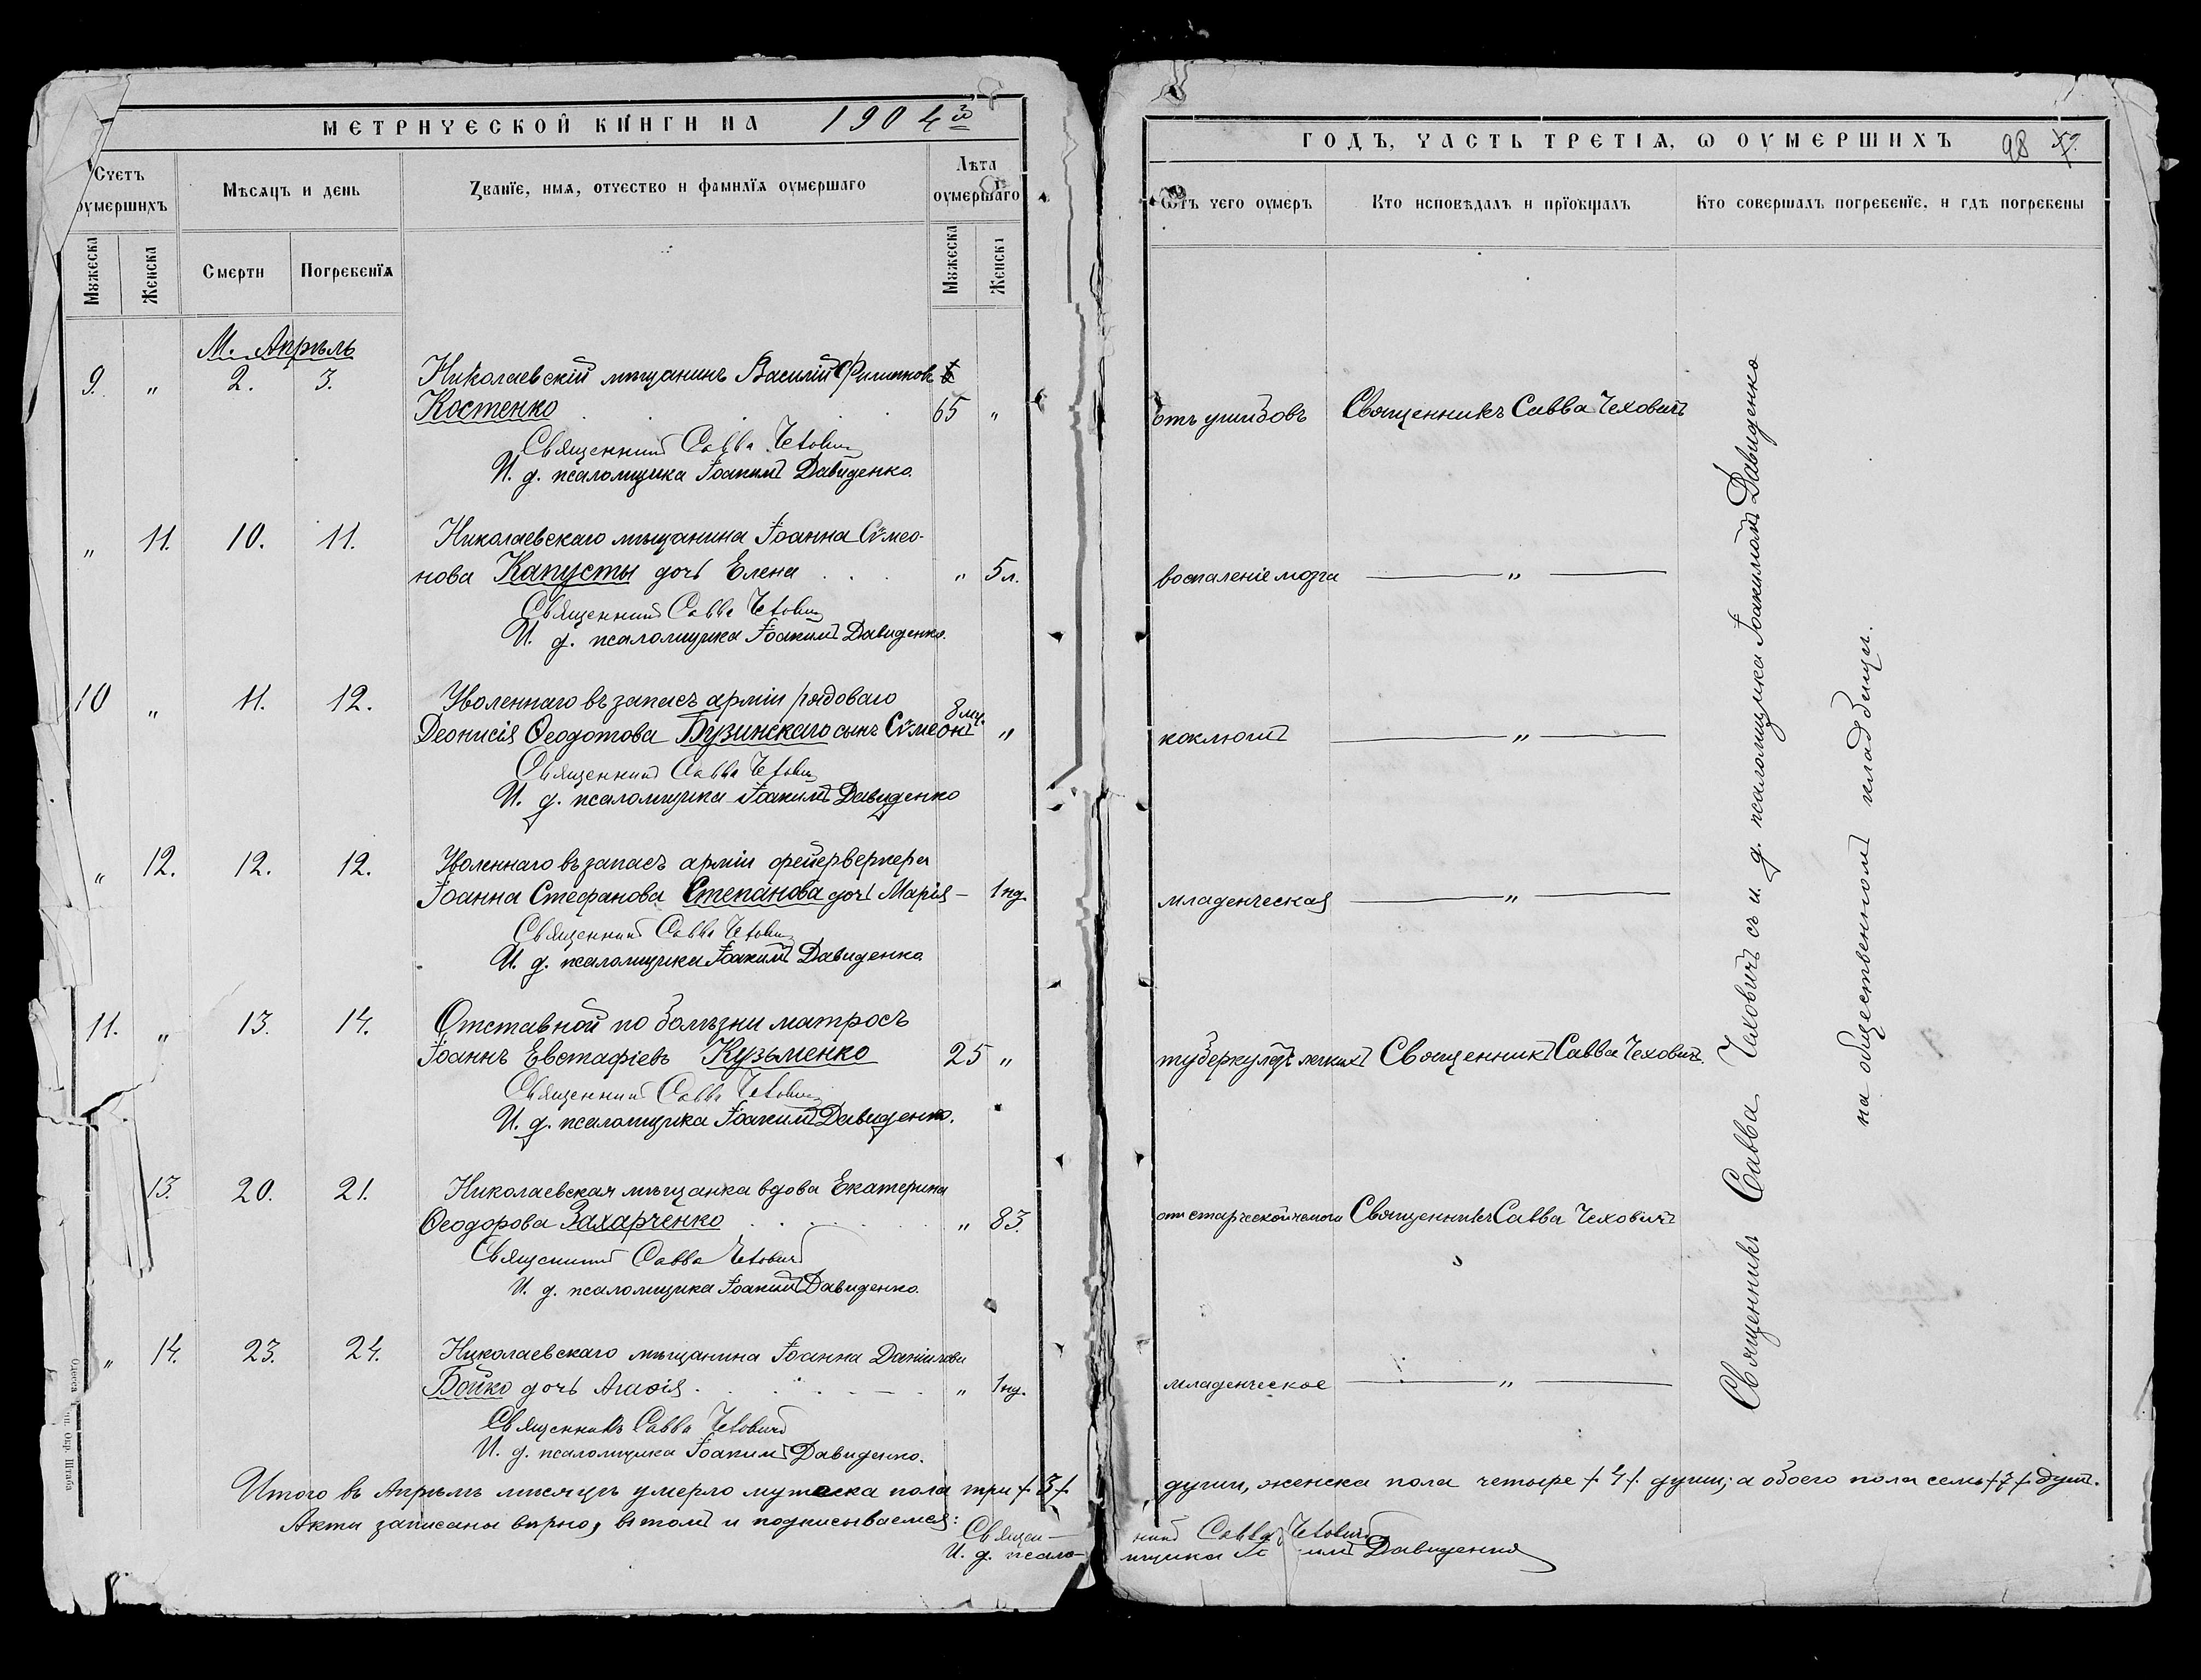 МЕТРИЧЕСКОЙ КНИГИ НА 1904й
Счетъ оумершихъ
Мѣсяцъ и день
Званїе, имя, отчество и фамилїя оумершаго
Лѣта оумершаго
Мужеска
Женска
Смерти
Погребенїя
Мужеска
Женска
М. Апрѣль
9. " 2. 3. Николаевскій мѣщанинъ Василій Филиповъ
Костенко 65 "
Священникъ Савва Чеховичъ
И. д. псаломщика Іоакимъ Давиденко.
" 11. 10. 11. Николаевскаго мѣщанина Іоанна Сѵмео-
нова Капусты дочь Елена " 5 л.
Священникъ Савва Чеховичъ
И. д. псаломщика Іоакимъ Давиденко.
10 " 11. 12. Уволеннаго въ запасъ арміи рядоваго
Деонисія Ѳеодотова Бузинскаго сынъ Сѵмеонъ 8 мц. "
Священникъ Савва Чеховичъ
И. д. псаломщика Іоакимъ Давиденко
" 12. 12. 12. Уволеннаго въ запасъ арміи фейерверкера
Іоанна Стефанова Степанова дочь Марія – 1 нд.
Священникъ Савва Чеховичъ
И. д. псаломщика Іоакимъ Давиденко.
11. " 13. 14. Отставной по болѣзни матросъ
Іоаннъ Евстафіевъ Кузьменко 25 "
Священникъ Савва Чеховичъ
И. д. псаломщика Іоакимъ Давиденко.
13. 20. 21. Николаевская мѣщанка вдова Екатерина
Ѳеодорова Захарченко " 83.
Священникъ Савва Чеховичъ
И. д. псаломщика Іоакимъ Давиденко.
" 14. 23. 24. Николаевскаго мѣщанина Іоанна Даніилова
Бойко дочь Агаѳія " 1 нд.
Священникъ Савва Чеховичъ
И. д. псаломщика Іоакимъ Давиденко.
Итого въ Апрѣлѣ мѣсяцѣ умерло мужеска пола три /3/
Акты записаны вѣрно, въ томъ и подписываемся:
Священ-
И. д. псало-
Одесса Тип. Окр. Штаба
ГОДЪ, ЧАСТЬ ТРЕТІЯ, Ѡ ОУМЕРШИХЪ 98
Ѿтъ чего оумеръ
Кто исповѣдалъ и прїобщалъ
Кто совершалъ погребенїе, и гдѣ погребены
отъ ушибовъ Священникъ Савва Чеховичъ
воспаленіе мозга — " —
коклюшъ — " —
младенческая — " —
туберкулёзъ легкихъ Священникъ Савва Чеховичъ.
отъ старческой немощи Священникъ Савва Чеховичъ
младенческое — " —
Священникъ Савва Чеховичъ съ и. д. псаломщика Іоакимомъ Давиденко
на общественномъ кладбищѣ.
души, женска пола четыре /4/ души; а обоего пола семь /7/ душъ.
никъ Савва Чеховичъ
мщика Іо имъ Давиденко